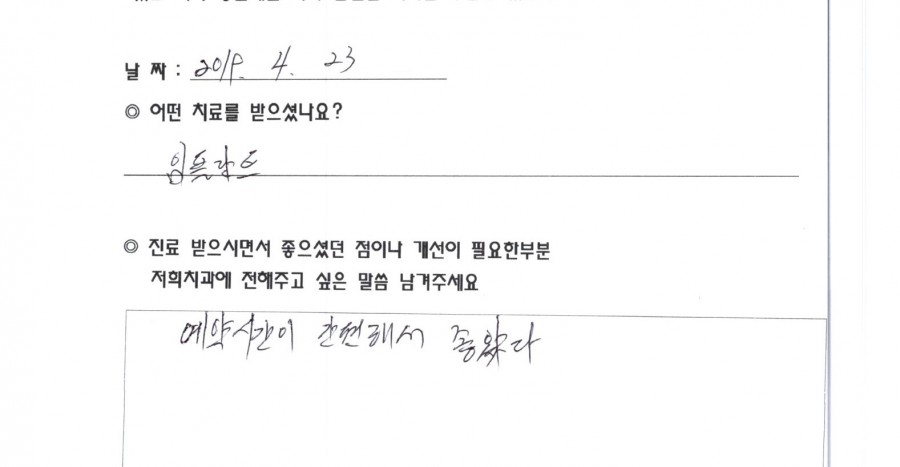 날 짜 : 2019. 4. 23
◎ 어떤 치료를 받으셨나요?
임플란트
◎ 진료 받으시면서 좋으셨던 점이나 개선이 필요한부분
저희치과에 전해주고 싶은 말씀 남겨주세요
예약시간이 간편해서 좋았다